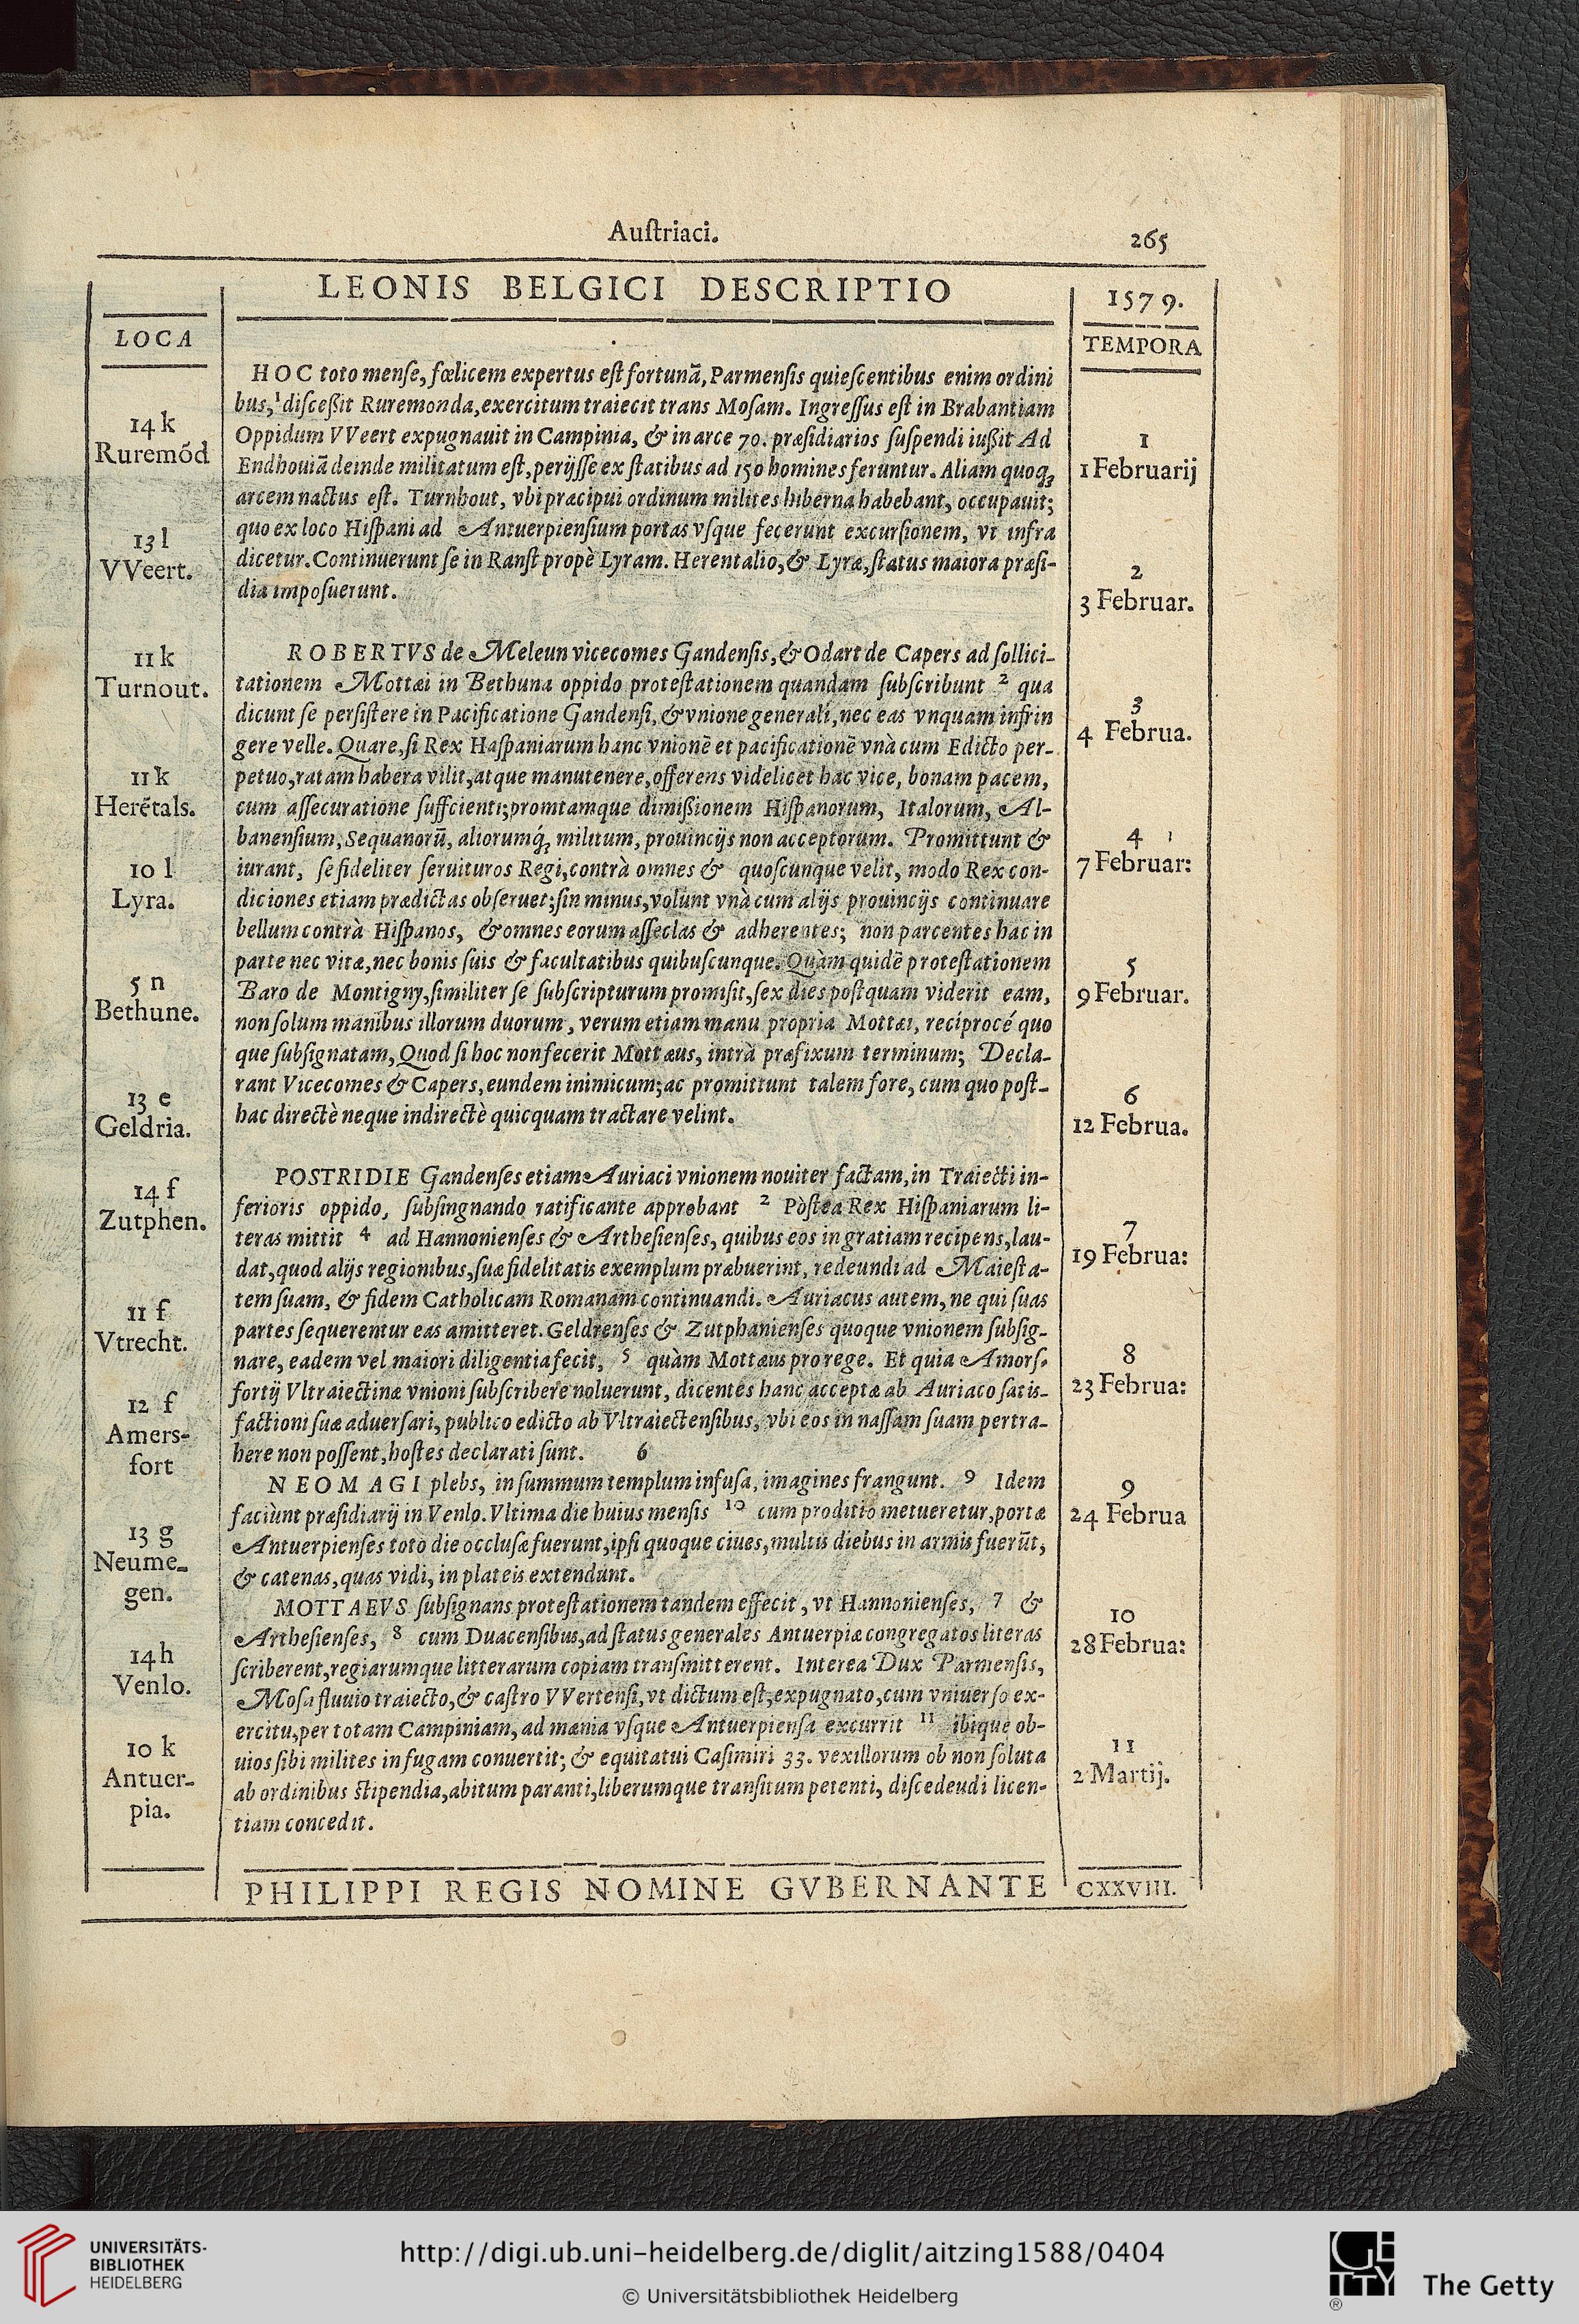 Auſtriaci.
265
LEONIS BELGICI DESCRIPTIO
1579.
LOCA
TEMPORA
14 k
Ruremõd
13 l
VVeert.
11 k
Turnout.
11 k
Herẽtals.
10 l
Lyra.
5 n
Bethune.
13 e
Geldria.
14 f
Zutphen.
11 f
Vtrecht.
12 f
Amers-
fort
13 g
Neume-
gen.
14 h
Venlo.
10 k
Antuer-
pia.
HOC toto menſe, fœlicem expertus eſt fortunã, Parmenſis quieſcentibus enim ordini
bus, 1 diſceßit Ruremonda, exercitum traiecit trans Moſam. Ingreſſus eſt in Brabantiam
Oppidum VVeert expugnauit in Campinia, & in arce 70. præſidiarios ſuſpendi iußit Ad
Endhouiã deinde militatum eſt, perijſſe ex ſtatibus ad 150 homines feruntur. Aliam quoqꝫ
arcem nactus eſt. Turnhout, vbi præcipui ordinum milites hiberna habebant, occupauit;
quo ex loco Hiſpani ad Antuerpienſium portas vſque fecerunt excurſionem, vt infra
dicetur. Continuerunt ſe in Ranſt propè Lyram. Herentalio, & Lyræ, ſtatus maiora præſi-
dia impoſuerunt.
ROBERTVS de Meleun vicecomes Gandenſis, & Odart de Capers ad ſollici-
tationem Mottæi in Bethuna oppido proteſtationem quandam ſubſcribunt 2 qua
dicunt ſe perſiſtere in Pacificatione Gandenſi, & vnione generali, nec eas vnquam infrin
gere velle. Quare, ſi Rex Haſpaniarum hanc vnionẽ et pacificationẽ vnà cum Edicto per-
petuo, ratam habera vilit, atque manutenere, offerens videlicet hac vice, bonam pacem,
cum aſſecuratione ſuffcienti; promtamque dimißionem Hiſpanorum, Italorum, Al-
banenſium, Sequanorũ, aliorumq́ꝫ militum, prouincijs non acceptorum. Promittunt &
iurant, ſe fideliter ſeruituros Regi, contrà omnes & quoſcunque velit, modo Rex con-
diciones etiam prædictas obſeruet; ſin minus, volunt vnà cum alijs prouincijs continuare
bellum contrà Hiſpanos, & omnes eorum aſſeclas & adherentes; non parcentes hac in
parte nec vitæ, nec bonis ſuis & facultatibus quibuſcunque. Quàm quidẽ proteſtationem
Baro de Montigny, ſimiliter ſe ſubſcripturum promiſit, ſex dies poſtquam viderit eam,
non ſolum manibus illorum duorum, verum etiam manu propria Mottæi, reciprocé quo
que ſubſignatam, Quod ſi hoc non fecerit Mottæus, intrà præfixum terminum; Decla-
rant Vicecomes & Capers, eundem inimicum; ac promittunt talem fore, cum quo poſt-
hac directè neque indirectè quicquam tractare velint.
POSTRIDIE Gandenſes etiam Auriaci vnionem nouiter factam, in Traiecti in-
ferioris oppido, ſubſingnando ratificante approbant 2 Pòſtea Rex Hiſpaniarum li-
teras mittit 4 ad Hannonienſes & Artheſienſes, quibus eos in gratiam recipens, lau-
dat, quod alijs regionibus, ſuæ fidelitatis exemplum præbuerint, redeundi ad Maieſta-
tem ſuam, & fidem Catholicam Romanam continuandi. Auriacus autem, ne qui ſuas
partes ſequerentur eas amitteret. Geldrenſes & Zutphanienſes quoque vnionem ſubſig-
nare, eadem vel maiori diligentia fecit, 5 quàm Mottæus pro rege. Et quia Amorſ-
fortij Vltraiectinæ vnioni ſubſcribere noluerunt, dicentes hanc acceptæ ab Auriaco ſatis-
factioni ſuæ aduerſari, publico edicto ab Vltraiectenſibus, vbi eos in naſſam ſuam pertra-
here non poſſent, hoſtes declarati ſunt. 6
NEOMAGI plebs, in ſummum templum infuſa, imagines frangunt. 9 Idem
faciùnt præſidiarij in Venlo. Vltima die huius menſis 10 cum proditio metueretur, portæ
Antuerpienſes toto die occluſæ fuerunt, ipſi quoque ciues, multis diebus in armis fuerũt,
& catenas, quas vidi, in plateis extendunt.
MOTTAEVS ſubſignans proteſtationem tandem effecit, vt Hannonienſes, 7 &
Artheſienſes, 8 cum Duacenſibus, ad ſtatus generales Antuerpiæ congregatos literas
ſcriberent, regiarumque litterarum copiam tranſmitterent. Interea Dux Parmenſis,
Moſa fluuio traiecto, & caſtro VVertenſi, vt dictum eſt, expugnato, cum vniuerſo ex-
ercitu, per totam Campiniam, ad mænia vſque Antuerpienſa excurrit 11 ibique ob-
uios ſibi milites in fugam conuertit; & equitatui Caſimiri 33. vexillorum ob non ſoluta
ab ordinibus ſtipendia, abitum paranti, liberumque tranſitum petenti, diſcedeudi licen-
tiam concedit.
1
1 Februarij
2
3 Februar.
3
4 Februa.
4
7 Februar:
5
9 Februar.
6
12 Februa.
7
19 Februa:
8
23 Februa:
9
24 Februa
10
28 Februa:
11
2 Martij.
PHILIPPI REGIS NOMINE GVBERNANTE
CXXVIII.
UNIVERSITÄTS-
BIBLIOTHEK
HEIDELBERG
http://digi.ub.uni-heidelberg.de/diglit/aitzing1588/0404
© Universitätsbibliothek Heidelberg
GETTY
®
The Getty